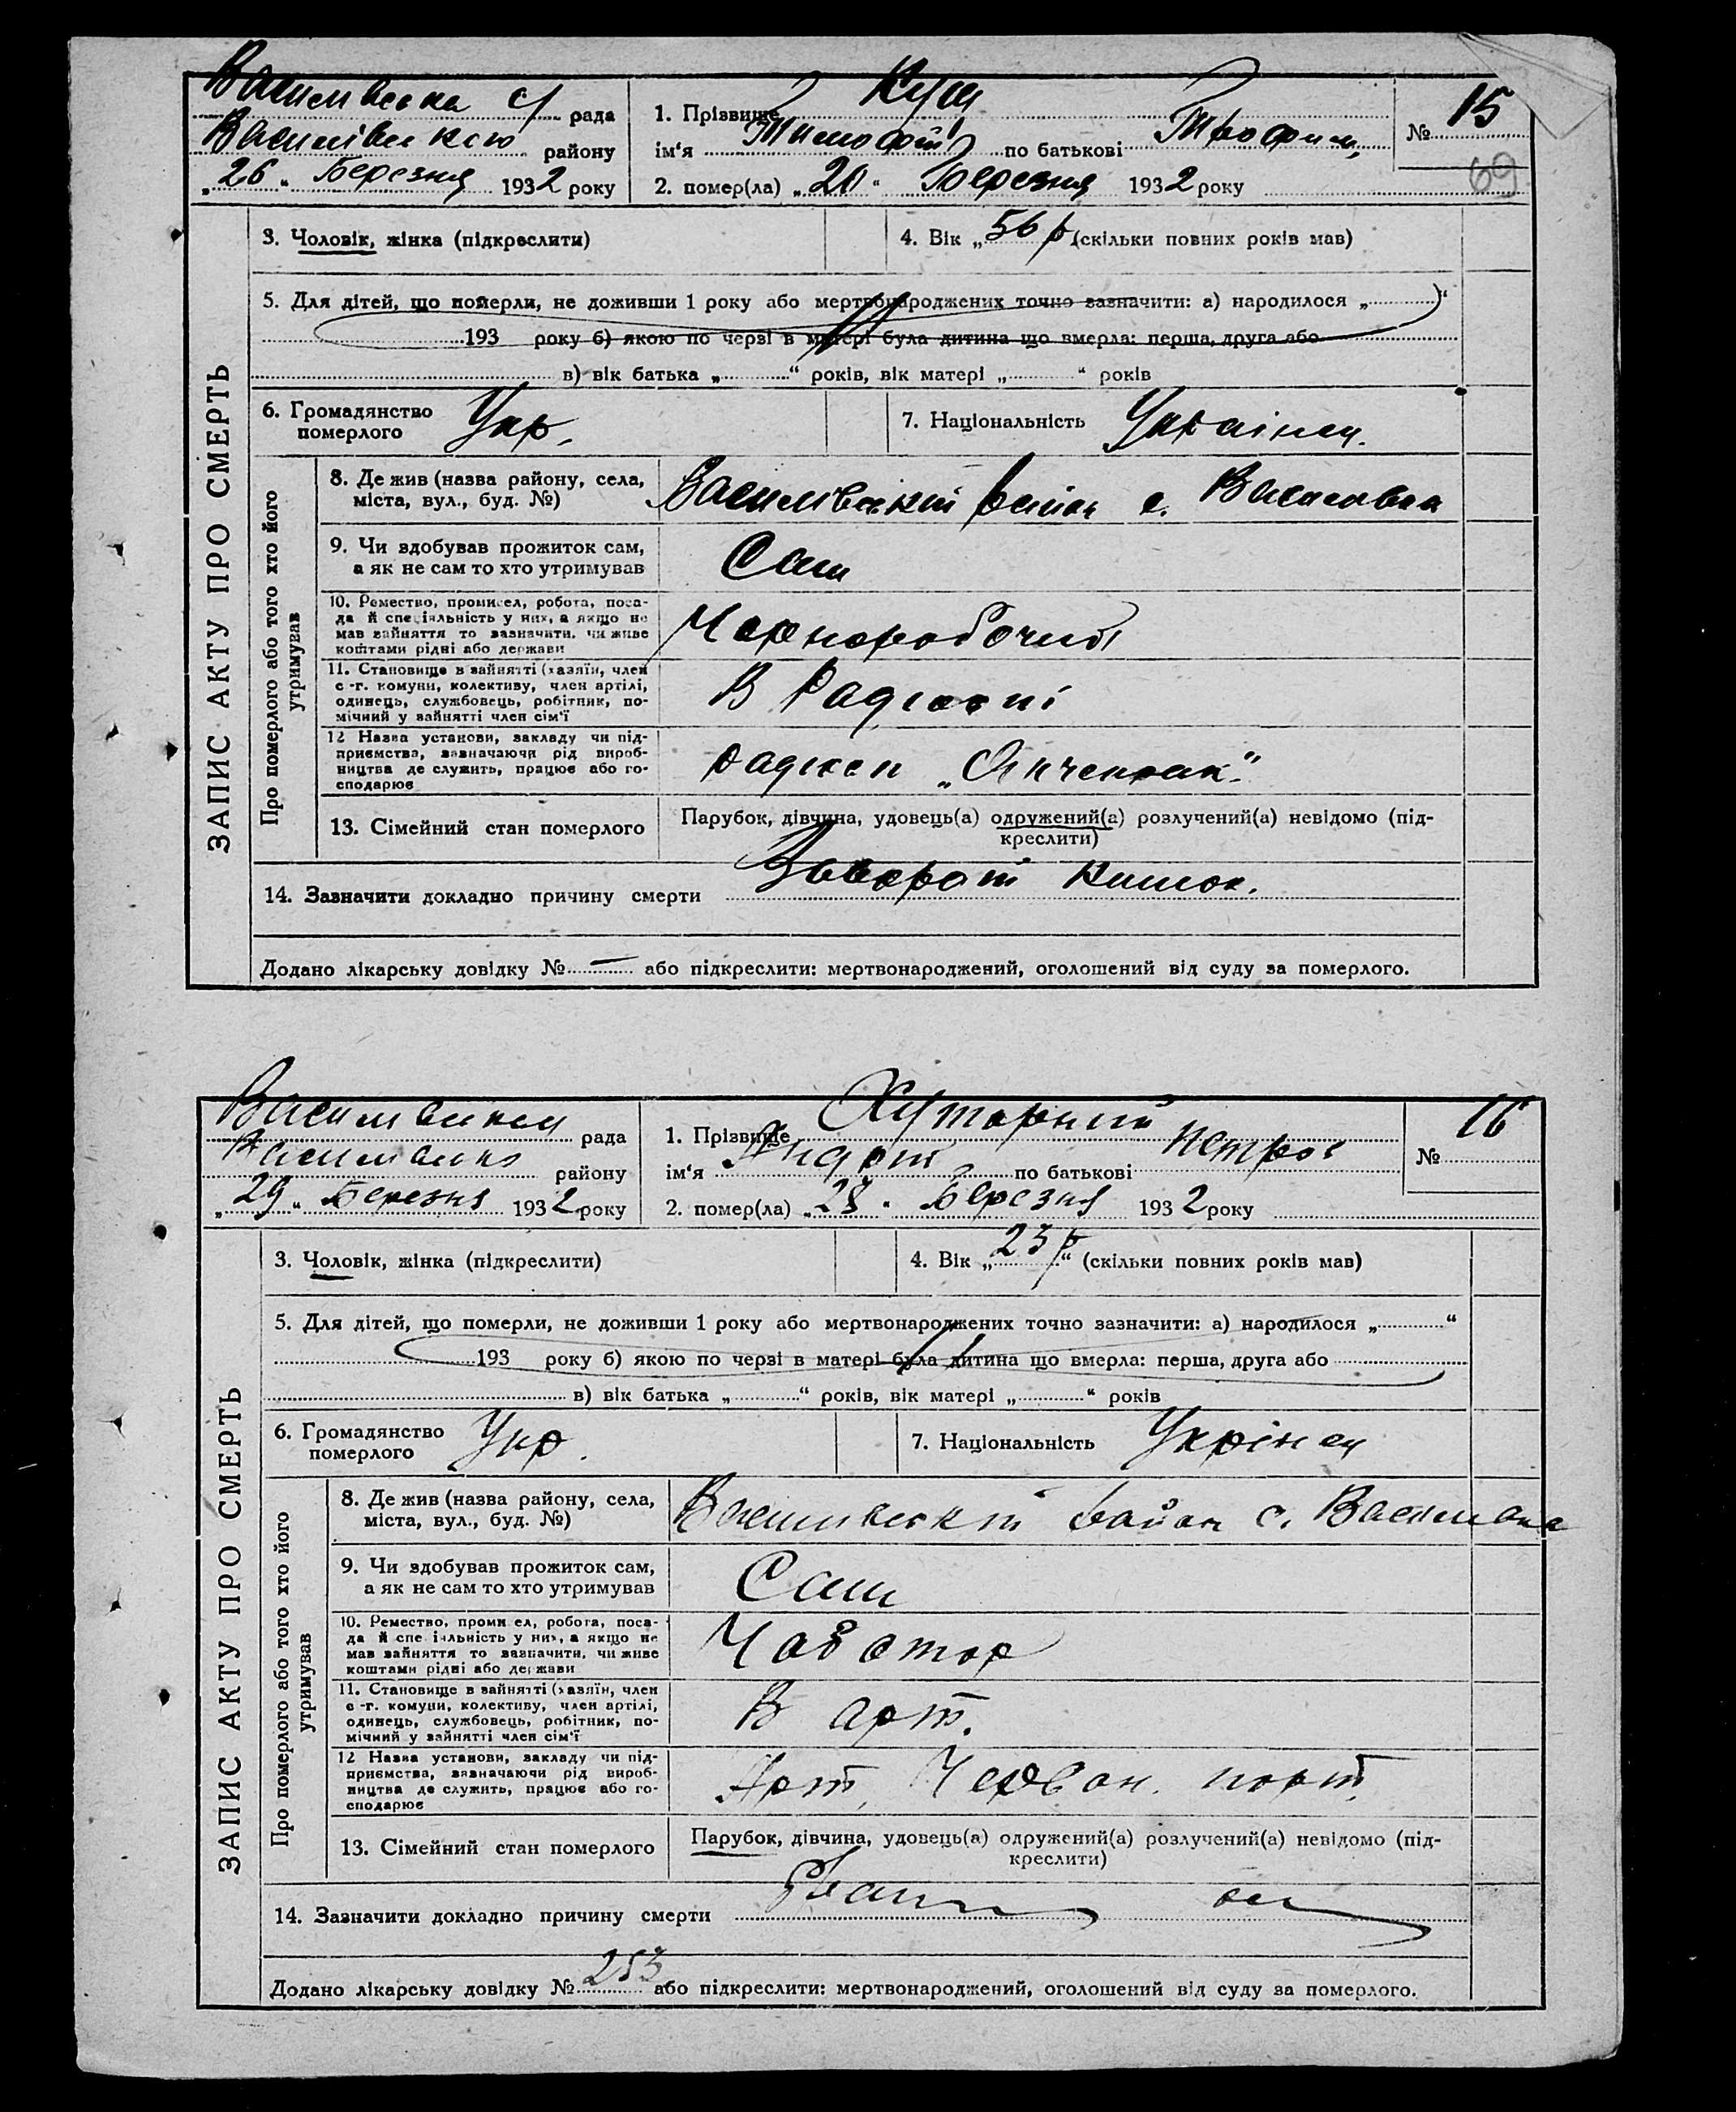 Василівська с/ рада
Василівсько району
„26“ Березня 1932 року
1. Прізвище Куш
ім'я Тимофій по батькові Трофим.
2. помер(ла) „20“ Березня 1932 року
№ 15
69
ЗАПИС АКТУ ПРО СМЕРТЬ
3. Чоловік, жінка (підкреслити)
4. Вік „56 р. (скільки повних років мав)
5. Для дітей, що померли, не доживши 1 року або мертвонароджених точно зазначити: а) народилося „ “
193 року б) якою по черзі в матері була дитина що вмерла: перша, друга або
в) вік батька „ “ років, вік матері „ “ років
6. Громадянство
померлого Укр.
7. Національність Українец.
Про померлого або того хто його
утримував
8. Де жив (назва району, села,
міста, вул., буд. №) Василівський район с. Василівка
9. Чи здобував прожиток сам,
а як не сам то хто утримував Сам
10. Ремество, промисел, робота, поса-
да й спеціяльність у них, а якщо не
мав зайняття то зазначити, чи живе
коштами рідні або держави Чорноробочий
11. Становище в зайнятті (хазяїн, член
с-г. комуни, колективу, член артілі,
одинець, службовець, робітник, по-
мічний у зайнятті член сім'ї В Радгоспі
12 Назва установи, закладу чи під-
приємства, зазначаючи рід вироб-
ництва де служить, працює або го-
сподарює радгосп
13. Сімейний стан померлого
Парубок, дівчина, удовець(а) одружений(а) розлучений(а) невідомо (під-
креслити)
14. Зазначити докладно причину смерти Заворот кишок.
Додано лікарську довідку № — або підкреслити: мертвонароджений, оголошений від суду за померлого.
Василівська рада
Василівсько району
„29“ Березня 1932 року
1. Прізвище Хуторний
ім'я Андрій по батькові Петров
2. помер(ла) „28“ Березня 1932 року
№ 16
ЗАПИС АКТУ ПРО СМЕРТЬ
3. Чоловік, жінка (підкреслити)
4. Вік „23 р.“ (скільки повних років мав)
5. Для дітей, що померли, не доживши 1 року або мертвонароджених точно зазначити: а) народилося „ “
193 року б) якою по черзі в матері була дитина що вмерла: перша, друга або
в) вік батька „ “ років, вік матері „ “ років
6. Громадянство
померлого Укр.
7. Національність Укрінец
Про померлого або того хто його
утримував
8. Де жив (назва району, села,
міста, вул., буд. №) Василівський район с. Василівка
9. Чи здобував прожиток сам,
а як не сам то хто утримував Сам
10. Ремество, промисел, робота, поса-
да й спеціяльність у них, а якщо не
мав зайняття то зазначити, чи живе
коштами рідні або держави Чоботор
11. Становище в зайнятті (хазяїн, член
с-г. комуни, колективу, член артілі,
одинець, службовець, робітник, по-
мічний у зайнятті член сім'ї В арт.
12 Назва установи, закладу чи під-
приємства, зазначаючи рід вироб-
ництва де служить, працює або го-
сподарює Арт. Червон.
13. Сімейний стан померлого
Парубок, дівчина, удовець(а) одружений(а) розлучений(а) невідомо (під-
креслити)
14. Зазначити докладно причину смерти
Додано лікарську довідку № 253 або підкреслити: мертвонароджений, оголошений від суду за померлого.